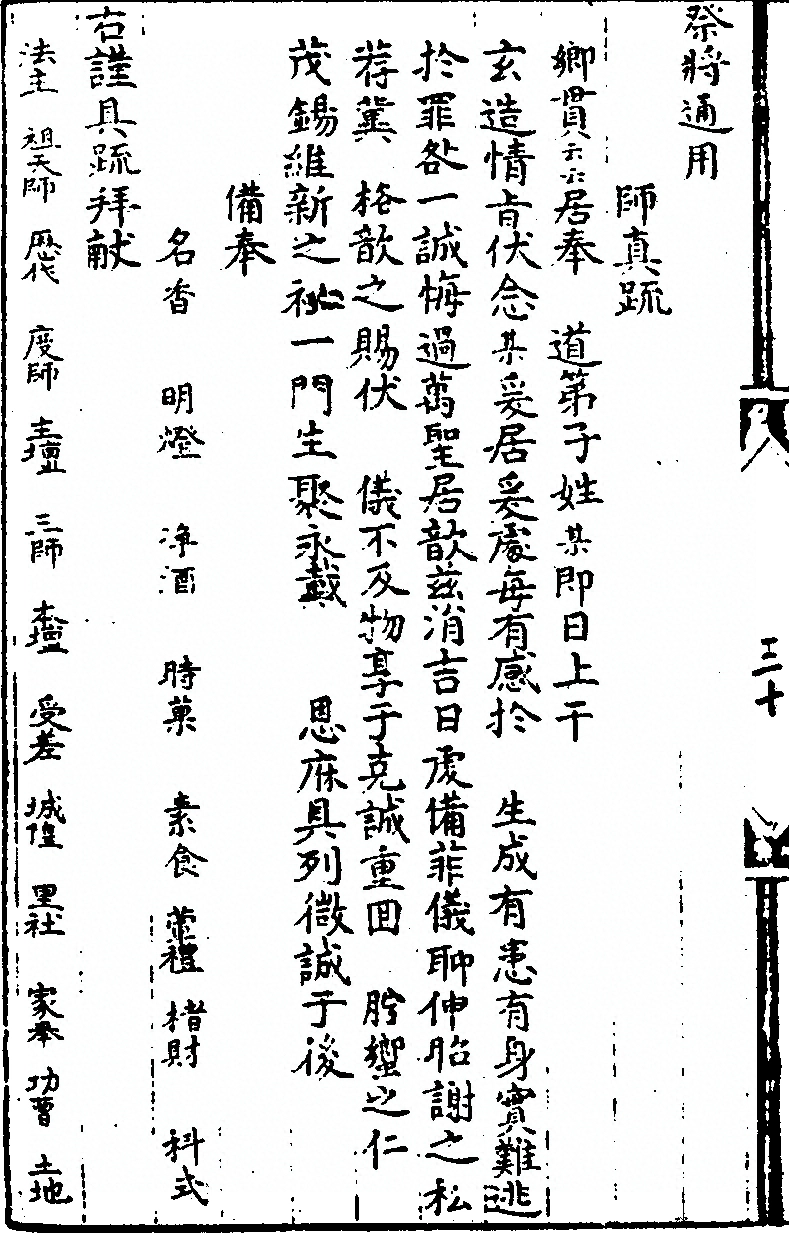 祭將通用
師真疏
鄉貫云云居奉 道第子姓某即日上干
玄造情旨伏念某爰居爰處每有感於 生成有患有身實難逃
於罪咎一誠悔過萬聖居歆茲消吉日虔備菲儀聊伸昭謝之私
荐冀 格歆之賜伏 儀不及物享于克誠重囬 肹蠁之仁
茂錫維新之祉一門生聚永戴 恩庥具列微誠于後
備奉
名香 明燈 净酒 時菓 素食 虀禮 楮財 科式
右謹具疏拜献
法主 祖天師 歷代 度師 主壇 三師 本壇 受差 城隍 里社 家奉 功曹 土地
三十